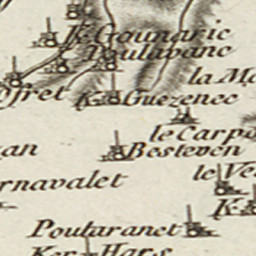 K. Gounaric
Poulavanc
la M
ofret K. Guezenec
le Carp
an Besteven
le Ve
rnavalet
K
Poutaranet
Ker Hars